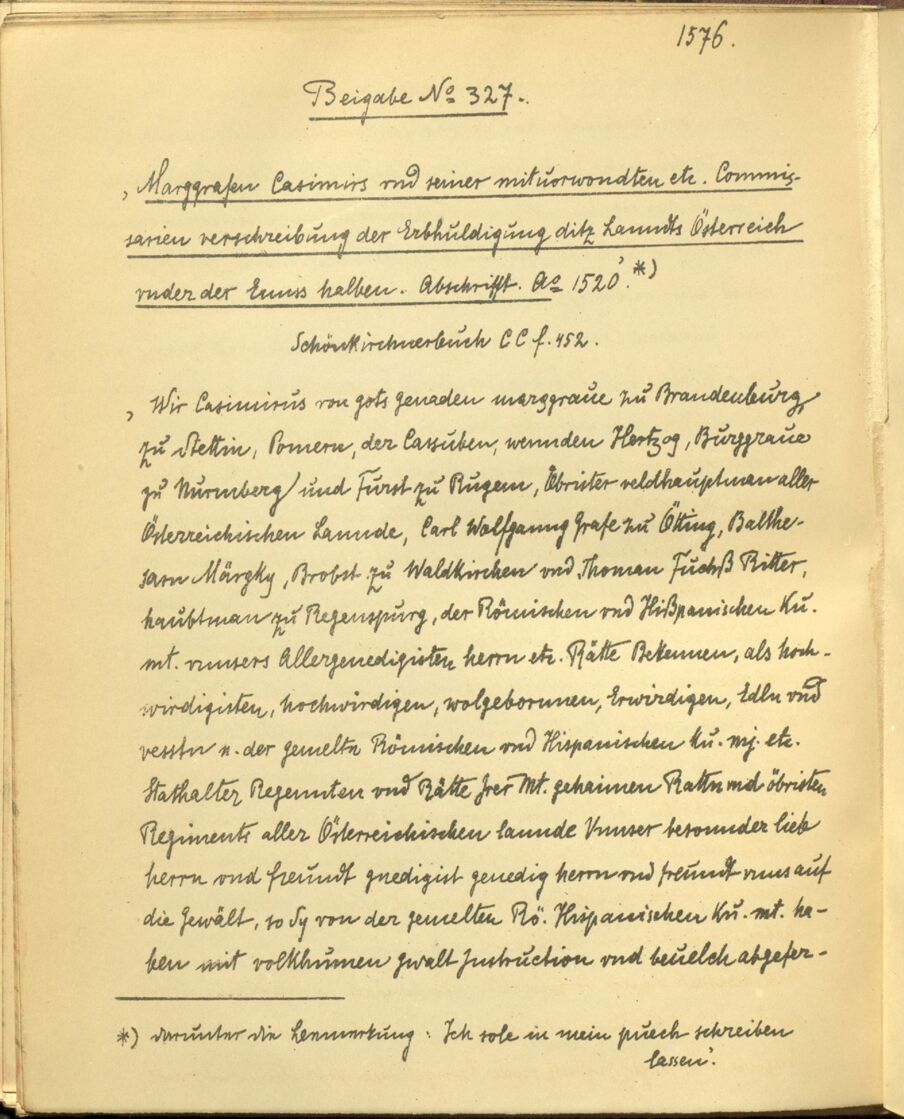 1576.
Beigabe No 327.
„Marggrafen Casimirs vnd seiner mituorwondten etc. Commis-
sarien verschreibung der Erbhuldigung ditz Lanndts Österreich
vnder der Ennss halben. Abschrifft. Ao 1520‘.*)
Schönkirchnerbuch CC f. 452.
„Wir Casimirus von gots genaden marggraue zu Brandenburg,
zu Stettin, Pomern, der Cassuben, wennden Hertzog, Burggraue
zu Nürmberg und Furst zu Rugem, Öbrister veldhauptman aller
Österreichischen Lannde, Carl Wolfganng Grafe zu Ötting, Balthe-
sarn Märgky, Brobst zu Waldkirchen vnd Thoman Fuchß Ritter,
haubtman zu Regenspurg, der Römischen vnd Hißpanischen Ku.
mt. vnnsers Allergenedigisten herrn etc. Rätte Bekennen, als hoch-
wirdigisten, hochwirdigen, wolgebornnen, Erwirdigen, Edln vnd
vesstn n. der gemeltn Römischen vnd Hispanischen Ku. mj. etc.
Stathalter Regennten vnd Rätte Jrer Mt. gehaimen Rattn vnd öbristen
Regiments aller Österreichischen lannde Vnnser besonnder lieb
herrn vnd freundt gnedigist genedig herrn vnd freundt vnns auf
die Gewält, so Sy von der gemelten Rö. Hispanischen Ku. mt. ha-
ben mit volkhumen gwalt Jnstruction vnd beuelch abgefer-
*) darunter die Bemerkung: Ich sole in mein puech schreiben
lassen‘.